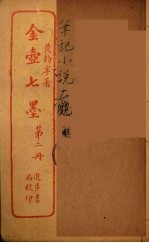 黃鈞宰著
金壺七墨
第二冊
進步書
局校印
筆記小說大觀